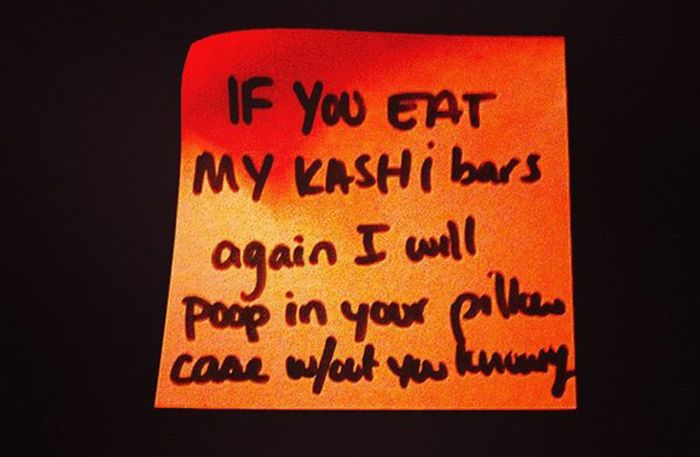 IF YOU EAT
MY KASHi bars
again I will
poop in your pillow
case w/out you knowing